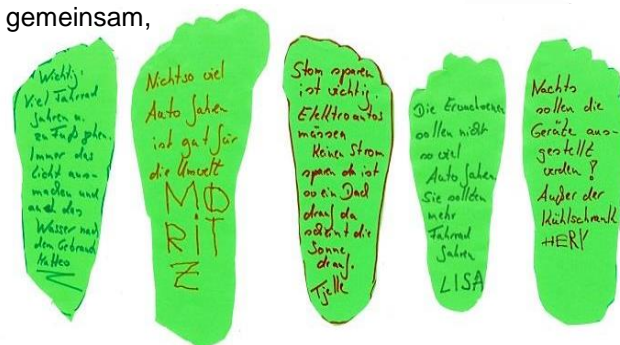 gemeinsam,
Wichtig:
Viel Fahrrad
fahren u.
zu Fuß gehen.
Immer das
Licht aus-
machen und
auch das
Wasser nach
dem Gebrauch
Matteo
Nicht so viel
Auto fahren
ist gut für
die Umwelt
MO
RIT
Z
Stom sparen
ist wichtig.
Elektroautos
müssen
Keinen Strom
sparen da ist
so ein Dach
drauf da
scheint die
Sonne
drauf.
Tjelle
Die Erwachsenen
sollen nicht
so viel
Auto fahren
Sie sollten
mehr
Fahrrad
fahren
LISA
Nachts
sollen die
Geräte aus-
gestellt
werden!
Außer der
Kühlschrank